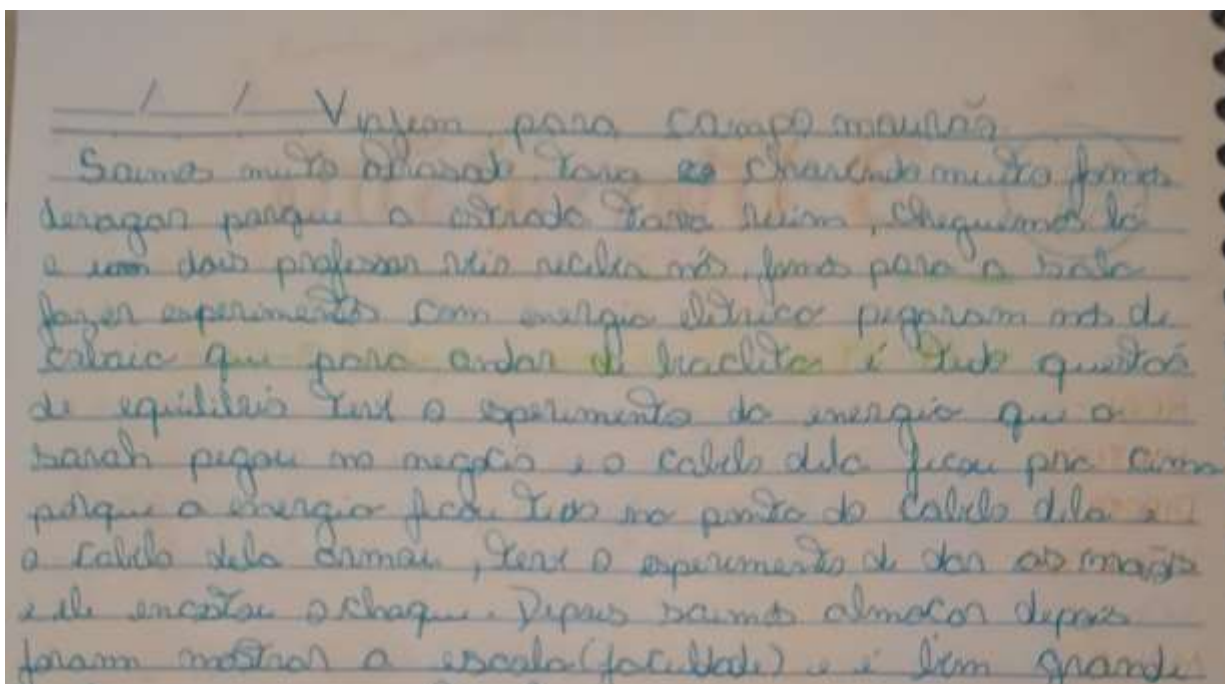 Viajem para campo mourão
Saimos muito atrasado tava chovendo muito fomos
devagar porque a estrada tava ruim, cheguemos lá
e dois professor veio recebe nós, fomos para a sala
fazer experimentos com energia elétrica pegaram nos de
que para andar de bicicleta é tudo questão
de equilíbrio teve o esperimento da energia que a
sarah pegou no negocio e o cabelo dela ficou pra cima
porque a energia ficou tudo na ponta do cabelo dela e
o cabelo dela armou, teve o esperimento de dar as mãos
e ele encostou o choque. Depois saimos almoçar depois
foram mostrar a escola (faculdade) e é bem grande